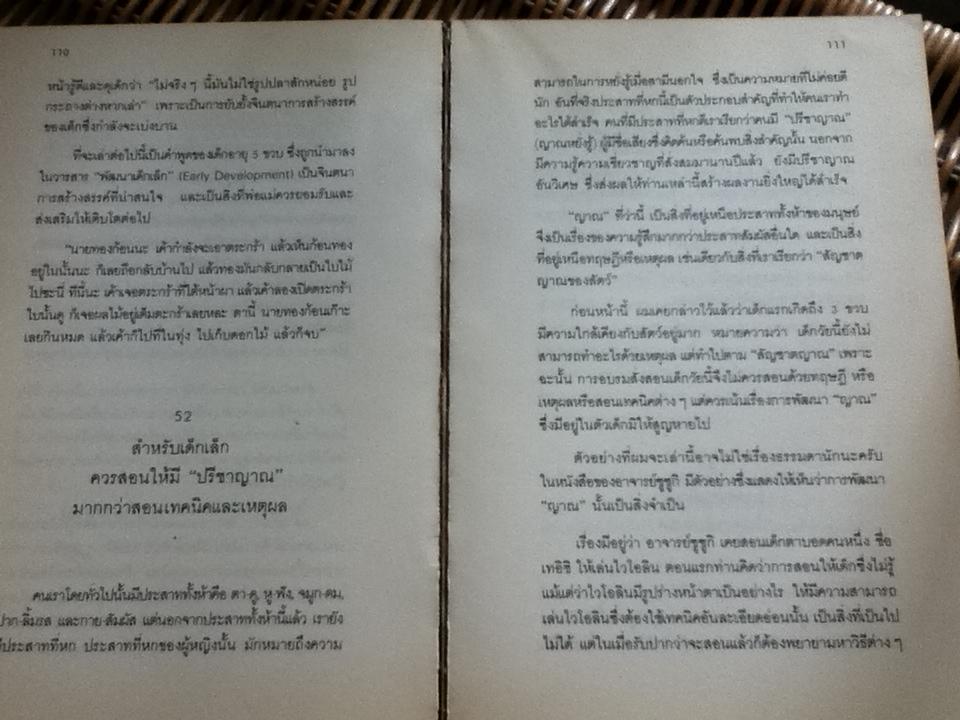 110
หน้ารู้ดีและดุเด็กว่า "ไม่จริง ๆ นี้มันไม่ใช่รูปปลาสักหน่อย รูป
กระถางต่างหากเล่า" เพราะเป็นการยับยั้งจินตนาการสร้างสรรค์
ของเด็กซึ่งกำลังจะเบ่งบาน
ที่จะเล่าต่อไปนี้เป็นคำพูดของเด็กอายุ 5 ขวบ ซึ่งถูกนำมาลง
ในวารสาร "พัฒนาเด็กเล็ก" (Early Development) เป็นจินตนา
การสร้างสรรค์ที่น่าสนใจ และเป็นสิ่งที่พ่อแม่ควรยอมรับและ
ส่งเสริมให้เติบโตต่อไป
"นายทองก้อนนะ เค้ากำลังจะเอาตระกร้า แล้วเห็นก้อนทอง
อยู่ในนั้นนะ ก็เลยถือกลับบ้านไป แล้วทองมันกลับกลายเป็นใบไม้
ไปซะนี่ ทีนี้นะ เค้าเจอตระกร้าที่ใต้หน้าผา แล้วเค้าลองเปิดตระกร้า
ใบนั้นดู ก็เจอผลไม้อยู่เต็มตะกร้าเลยหละ ตานี้ นายทองก้อนก๊าะ
เลยกินหมด แล้วเค้าก็ไปที่ในทุ่ง ไปเก็บดอกไม้ แล้วก็จบ"
52
สำหรับเด็กเล็ก
ควรสอนให้มี "ปรีชาญาณ"
มากกว่าสอนเทคนิคและเหตุผล
คนเราโดยทั่วไปนั้นมีประสาททั้งห้าคือ ตา-ดู, หู-ฟัง, จมูก-ดม,
ปาก-ลิ้มรส และกาย-สัมผัส แต่นอกจากประสาททั้งห้านี้แล้ว เรายัง
มีประสาทที่หก ประสาทที่หกของผู้หญิงนั้น มักหมายถึงความ
111
สามารถในการหยั่งรู้เมื่อสามีนอกใจ ซึ่งเป็นความหมายที่ไม่ค่อยดี
นัก อันที่จริงประสาทที่หกนี้เป็นตัวประกอบสำคัญที่ทำให้คนเราทำ
อะไรได้สำเร็จ คนที่มีประสาทที่หกดีเราเรียกว่าคนมี "ปรีชาญาณ"
(ญาณหยั่งรู้) ผู้มีชื่อเสียงซึ่งคิดค้นหรือค้นพบสิ่งสำคัญนั้น นอกจาก
มีความรู้ความเชี่ยวชาญที่สั่งสมมานานปีแล้ว ยังมีปรีชาญาณ
อันวิเศษ ซึ่งส่งผลให้ท่านเหล่านี้สร้างผลงานยิ่งใหญ่ได้สำเร็จ
"ญาณ" ที่ว่านี้ เป็นสิ่งที่อยู่เหนือประสาททั้งห้าของมนุษย์
จึงเป็นเรื่องของความรู้สึกมากกว่าประสาทสัมผัสอื่นใด และเป็นสิ่ง
ที่อยู่เหนือทฤษฎีหรือเหตุผล เช่นเดียวกับสิ่งที่เราเรียกว่า "สัญชาต
ญาณของสัตว์"
ก่อนหน้านี้ ผมเคยกล่าวไว้แล้วว่าเด็กแรกเกิดถึง 3 ขวบ
มีความใกล้เคียงกับสัตว์อยู่มาก หมายความว่า เด็กวัยนี้ยังไม่
สามารถทำอะไรด้วยเหตุผล แต่ทำไปตาม "สัญชาตญาณ" เพราะ
ฉะนั้น การอบรมสั่งสอนเด็กวัยนี้จึงไม่ควรสอนด้วยทฤษฎี หรือ
เหตุผลหรือสอนเทคนิคต่าง ๆ แต่ควรเน้นเรื่องการพัฒนา "ญาณ"
ซึ่งมีอยู่ในตัวเด็กมิให้สูญหายไป
ตัวอย่างที่ผมจะเล่านี้อาจไม่ใช่เรื่องธรรมดานักนะครับ
ในหนังสือของอาจารย์ซูซูกิ มีตัวอย่างซึ่งแสดงให้เห็นว่าการพัฒนา
"ญาณ" นั้นเป็นสิ่งจำเป็น
เรื่องมีอยู่ว่า อาจารย์ซูซูกิ เคยสอนเด็กตาบอดคนหนึ่ง ชื่อ
เทอิชิ ให้เล่นไวโอลิน ตอนแรกท่านคิดว่าการสอนให้เด็กซึ่งไม่รู้
แม้แต่ว่าไวโอลินมีรูปร่างหน้าตาเป็นอย่างไร ให้มีความสามารถ
เล่นไวโอลินซึ่งต้องใช้เทคนิคอันละเอียดอ่อนนั้น เป็นสิ่งที่เป็นไป
ไม่ได้ แต่ในเมื่อรับปากว่าจะสอนแล้วก็ต้องพยายามหาวิธีต่าง ๆ